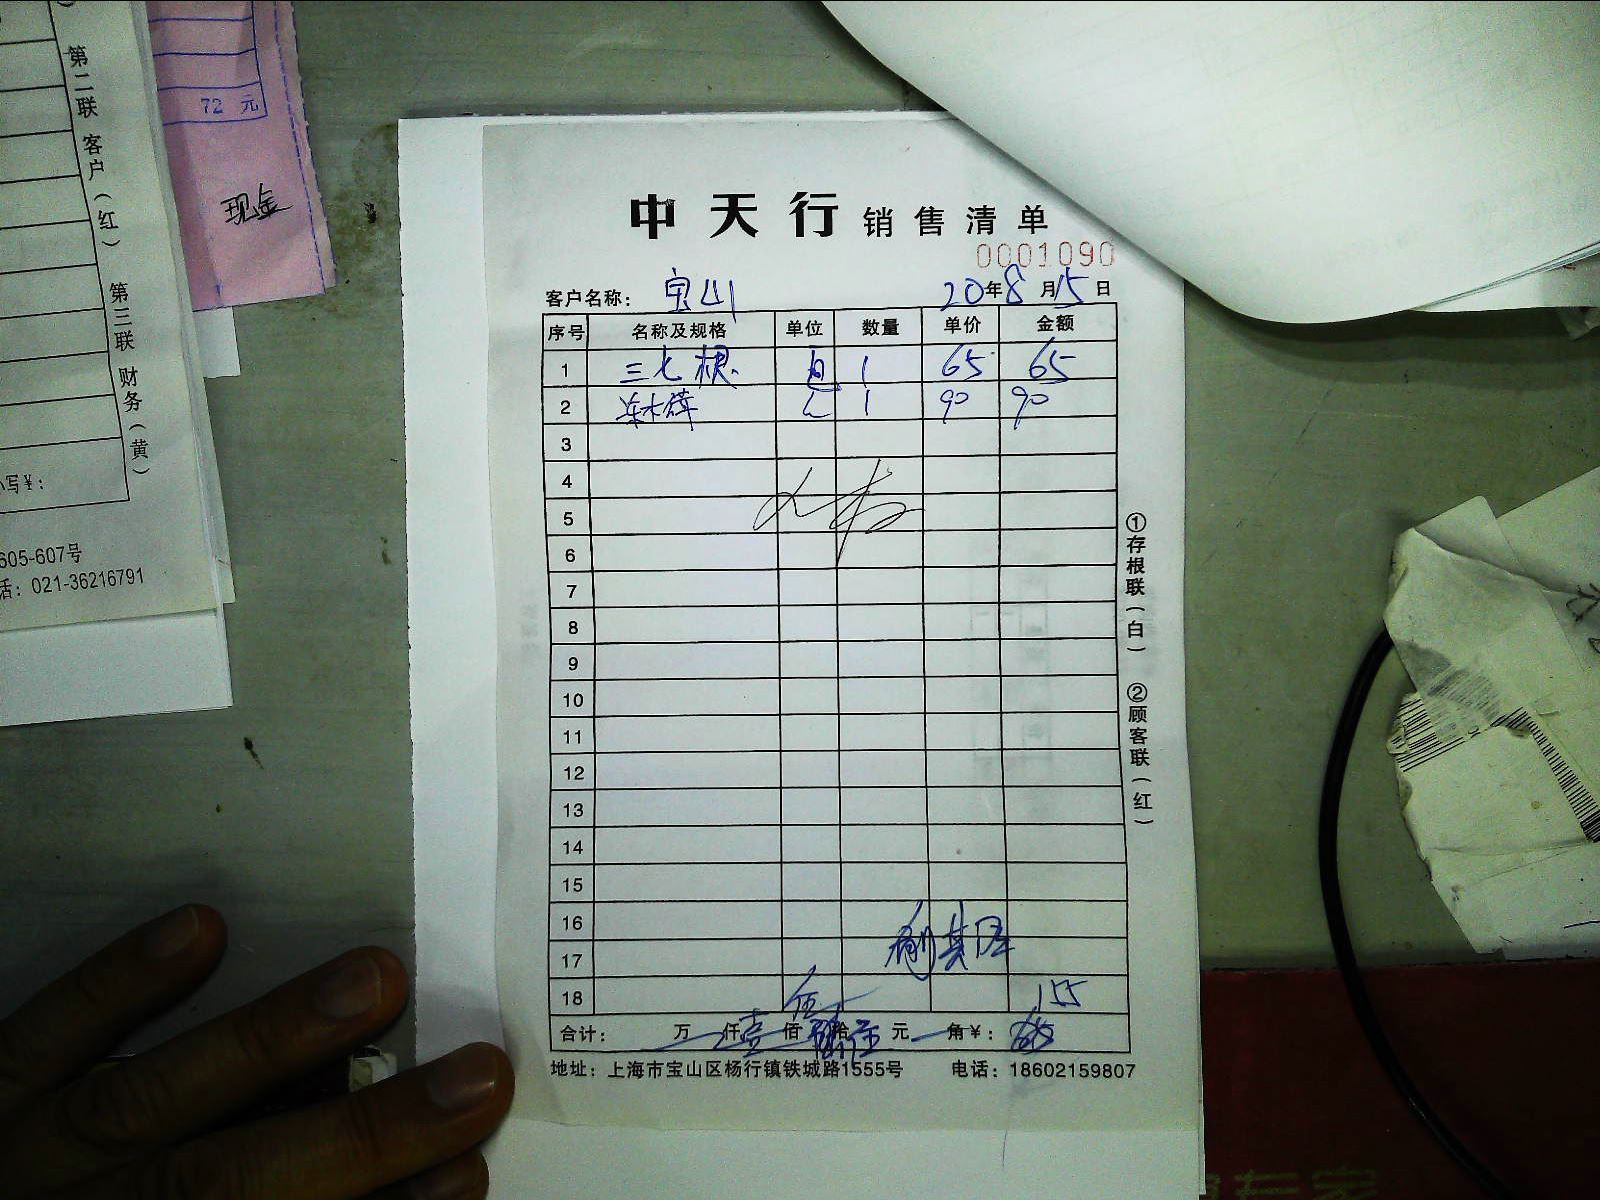 中天行 销售清单
0001090
客户名称: 宝山 20年8月15日
序号 名称及规格 单位 数量 单价 金额
1 三七根 包 1 65 65
2 1 90 90
3
4
5
6
7
8
9
10
11
12
13
14
15
16
17
18 155
合计: 万 仟壹佰伍拾伍元 角¥:
地址: 上海市宝山区杨行镇铁城路1555号 电话: 18602159807
①存根联(白) ②顾客联(红)
第二联 客户(红) 第三联 财务(黄)
小写¥:
605-607号
话: 021-36216791
72 元
现金